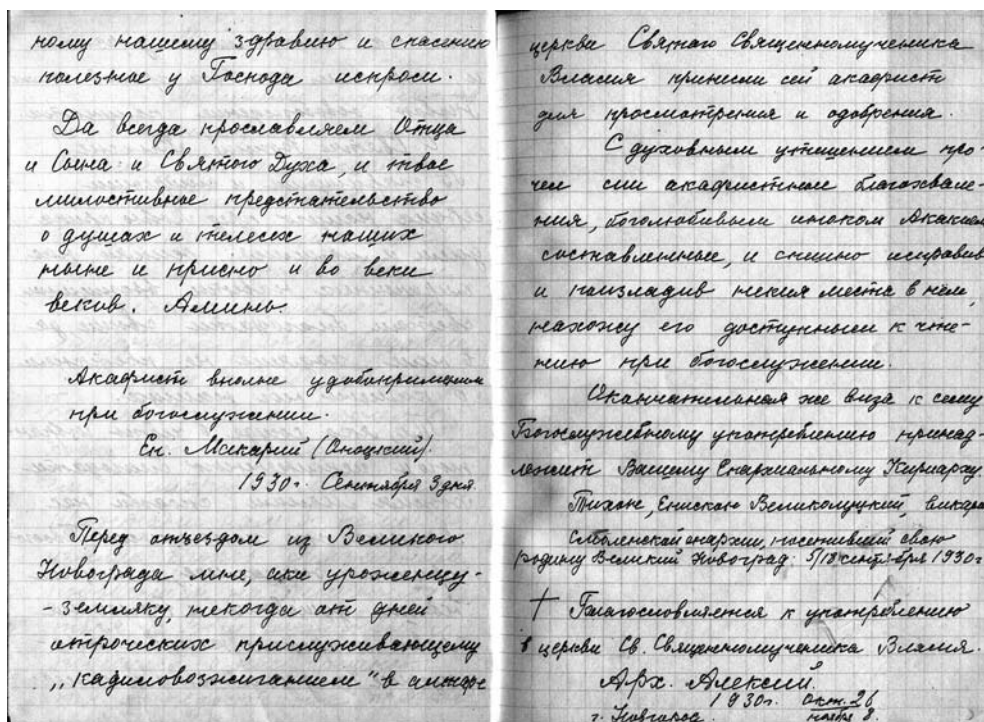 ному нашему здравию и спасению
полезное у Господа испроси.
Да всегда прославляем Отца
и Сына и Святого Духа, и твое
милостивное предстательство
о душах и телесех наших
ныне и присно и во веки
веков. Аминь.
Акафист вполне удобоприменим
при богослужении.
Еп. Макарий (Опоцкий).
1930 г. Сентября 3 дня.
Перед отъездом из Великого
Новограда мне, аки уроженцу-
-земляку, некогда от дней
отроческих прислуживающему
„кадиловозжиганием" в алтаре
церкви Святаго Священномученика
Власия принесли сей акафист
для просмотрения и одобрения.
С духовным утешением про-
чел сии акафистные благохвале-
ния, боголюбивым иноком Акакием
составленные, и спешно исправив
и поизгладив некия места в нем,
нахожу его доступным к чте-
нию при богослужении.
Окончательная же виза к сему
Богослужебному употреблению принад-
лежит Вашему Епархиальному Кириарху.
Тихон, Епископ Великолуцкий, викарий
Смоленской епархии, посетивший свою
родину Великий Новоград. 5/18 сентября 1930 г
† Благословляется к употреблению
в церкви Св. Священномученика Власия.
Арх. Алексий.
1930 г. Окт. 26
ноября 8.
г. Новгород.